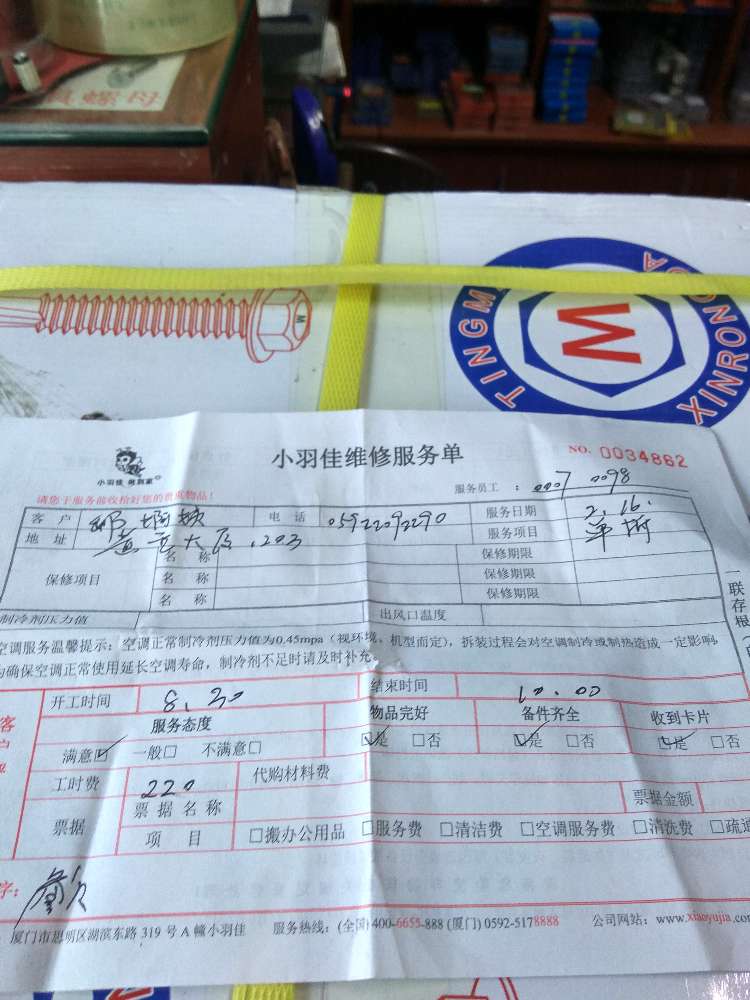 螺母
M
TINGM
XINRONG
小羽佳维修服务单
NO. 0034862
小羽佳 做到家
请您于服务前收拾好您的贵重物品!
服务员工 : 0007 0098
客 户
电 话 05922092290
服务日期 2.16.
地 址 黄 大厦.203
服务项目 单拆
保修项目
名 称
保修期限
名 称
保修期限
名 称
保修期限
制冷剂压力值
出风口温度
空调服务温馨提示:空调正常制冷剂压力值为0.45mpa(视环境、机型而定),拆装过程会对空调制冷或制热造成一定影响
为确保空调正常使用延长空调寿命,制冷剂不足时请及时补充。
一联存根
开工时间 8.30
结束时间 10.00
服务态度
物品完好
备件齐全
收到卡片
满意☑ 一般□ 不满意□
☑是 □否
☑是 □否
☑是 □否
工时费 220
代购材料费
票据
票据名称
票据金额
项 目 □搬办公用品 □服务费 □清洁费 □空调服务费 □清洗费 □疏通
字:
厦门市思明区湖滨东路 319 号 A 幢小羽佳 服务热线:(全国) 400-6655-888 (厦门) 0592-5178888 公司网站:www.xiaoyujia.com